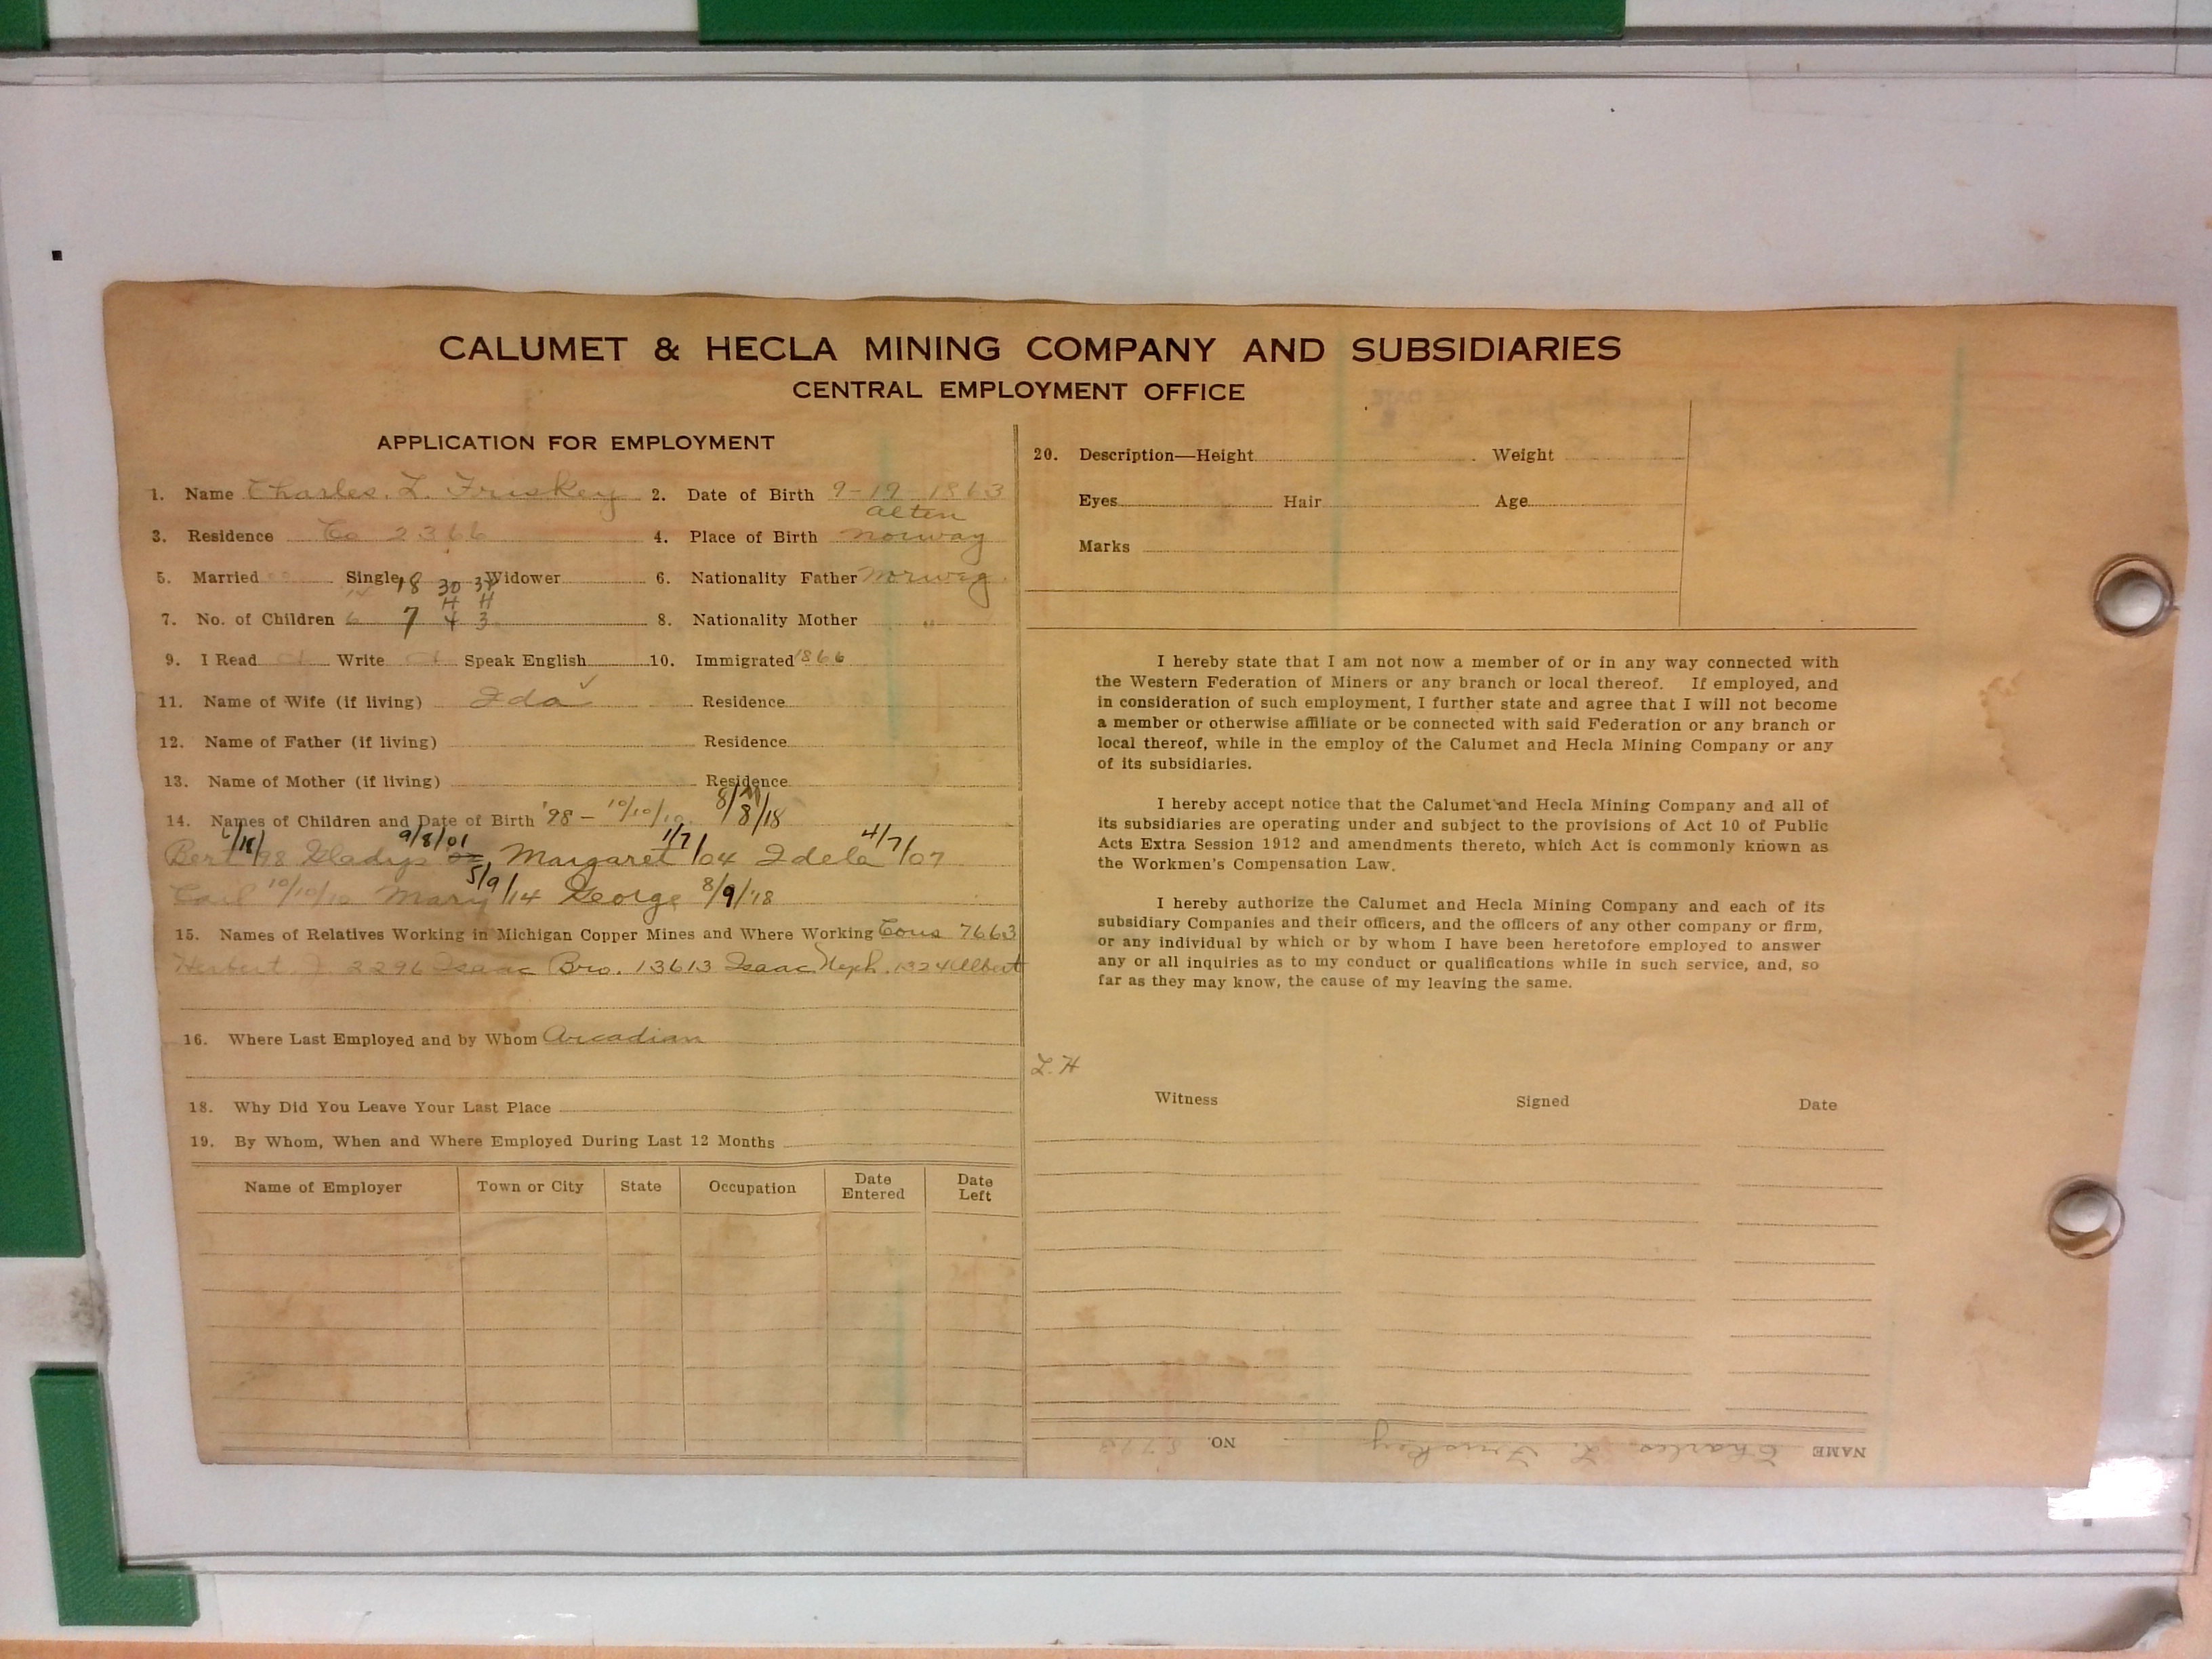 CALUMET & HECLA MINING COMPANY AND SUBSIDIARIES
CENTRAL EMPLOYMENT OFFICE
APPLICATION FOR EMPLOYMENT
1. Name Charles. L. Friskey 2. Date of Birth 9-19 1863
alten
3. Residence Co 2366 4. Place of Birth Norway
5. Married Single 18 30 Widower 6. Nationality Father Norweg.
H H
7. No. of Children 6 7 4 3 8. Nationality Mother "
9. I Read Write Speak English 10. Immigrated 1866
11. Name of Wife (if living) Ida ✓ Residence
12. Name of Father (if living) Residence
13. Name of Mother (if living) Residence
14. Names of Children and Date of Birth '98 - 10/10/10 8/8/18
Bert /98 Gladys 9/8/01 Margaret 1/7/04 Idela 4/7/07
Carl 10/10/10 Mary 5/9/14 George 8/9/18
15. Names of Relatives Working in Michigan Copper Mines and Where Working Cous 7663
Herbert J. 2296 Isaac Bro. 13613 Isaac Neph. 1324 Albert
16. Where Last Employed and by Whom Arcadian
18. Why Did You Leave Your Last Place
19. By Whom, When and Where Employed During Last 12 Months
Name of Employer Town or City State Occupation Date Entered Date Left
20. Description—Height Weight
Eyes Hair Age
Marks
I hereby state that I am not now a member of or in any way connected with
the Western Federation of Miners or any branch or local thereof. If employed, and
in consideration of such employment, I further state and agree that I will not become
a member or otherwise affiliate or be connected with said Federation or any branch or
local thereof, while in the employ of the Calumet and Hecla Mining Company or any
of its subsidiaries.
I hereby accept notice that the Calumet and Hecla Mining Company and all of
its subsidiaries are operating under and subject to the provisions of Act 10 of Public
Acts Extra Session 1912 and amendments thereto, which Act is commonly known as
the Workmen's Compensation Law.
I hereby authorize the Calumet and Hecla Mining Company and each of its
subsidiary Companies and their officers, and the officers of any other company or firm,
or any individual by which or by whom I have been heretofore employed to answer
any or all inquiries as to my conduct or qualifications while in such service, and, so
far as they may know, the cause of my leaving the same.
L.H
Witness Signed Date
NAME Charles L. Friskey NO.